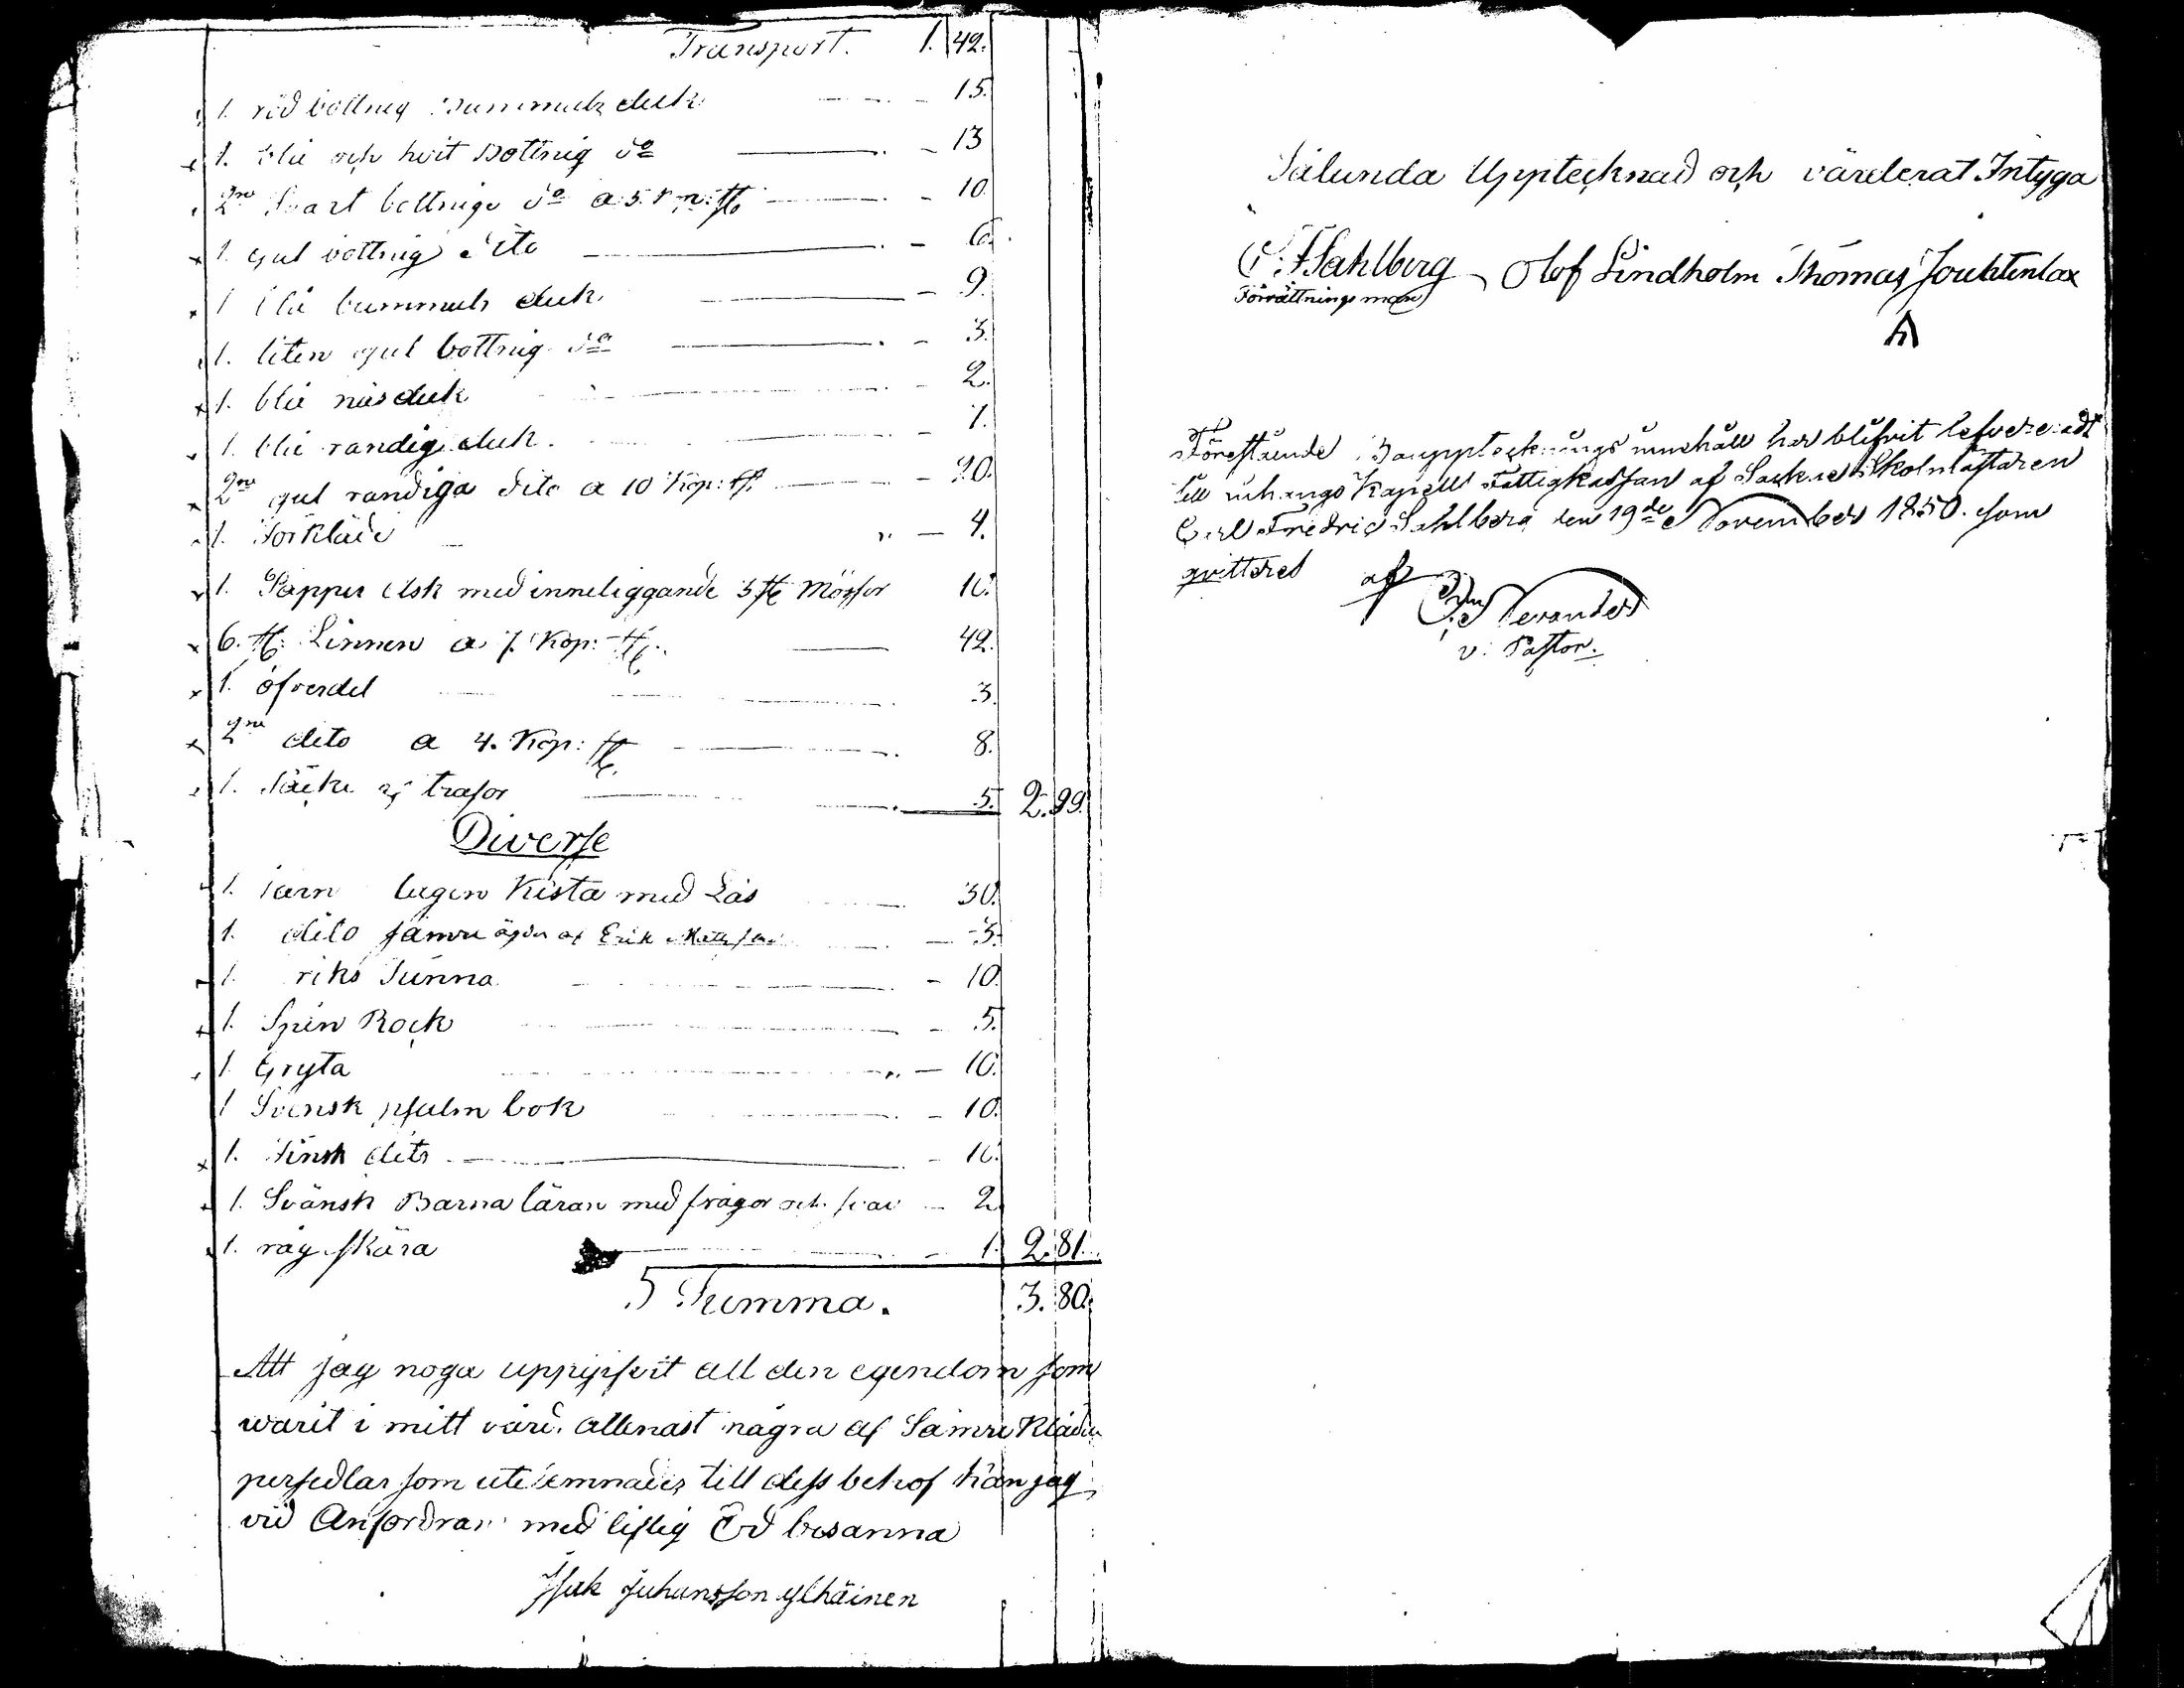 Transport. 1. 42.
1. röd bottnig Bummuls duk - 15.
1. blå och hvit Bottnig do - 13
2ne Svart bottnige do a 5. k: st: - 10.
1. gul bottnig dito - 6.
1 blå bummuls duk - 9.
1. liten gul bottnig do - 3.
1. blå näsduk - 2.
1. blå randig duk. - 7.
2ne gul randiga dito a 10 Kop: st. - 20.
1. Förkläde - 4.
1. Papper Ask med inneliggande 3 st Mössor 10.
6. st: Linnen a 7. Kop: st. 42.
1. öfverdel 3.
2ne dito a 4. Kop: st. 8.
1. Säck af trasor 5. 2. 99.
Diverse
1. järn lagen Kista med Lås 30.
1. dito sämre äges af Erik - 3.
1. riks Tunna - 10.
1. Spin Rock - 5.
1. Gryta - 10.
1 Svensk psalm bok - 10.
1. Finsk dito - 10.
1. Svänsk Barna läran med frågor och svar - 2
1. råg skära - 1. 2. 81.
Summa. 3. 80.
Att jag noga uppgifvit all den egendom som
warit i mitt vård, allenast några af Sämre Kläde
persedlar som utelemnades till dess behof kan jag
vid Anfordran med liflig Ed besanna
Isak Juhansson Ylhäinen
Sålunda Upptecknad och värderat Intyga
C. F. Sahlberg Olof Lindholm Thomas Jouktenlax
Förrättnings man
Förestående Boupptecknings innehåll har blifvit lefvereradt
till Kapells Fattigkassan af Sockne Skolmästaren
Carl Fredric Sahlberg den 19de November 1850. som
qvitteras af
v. Pastor.